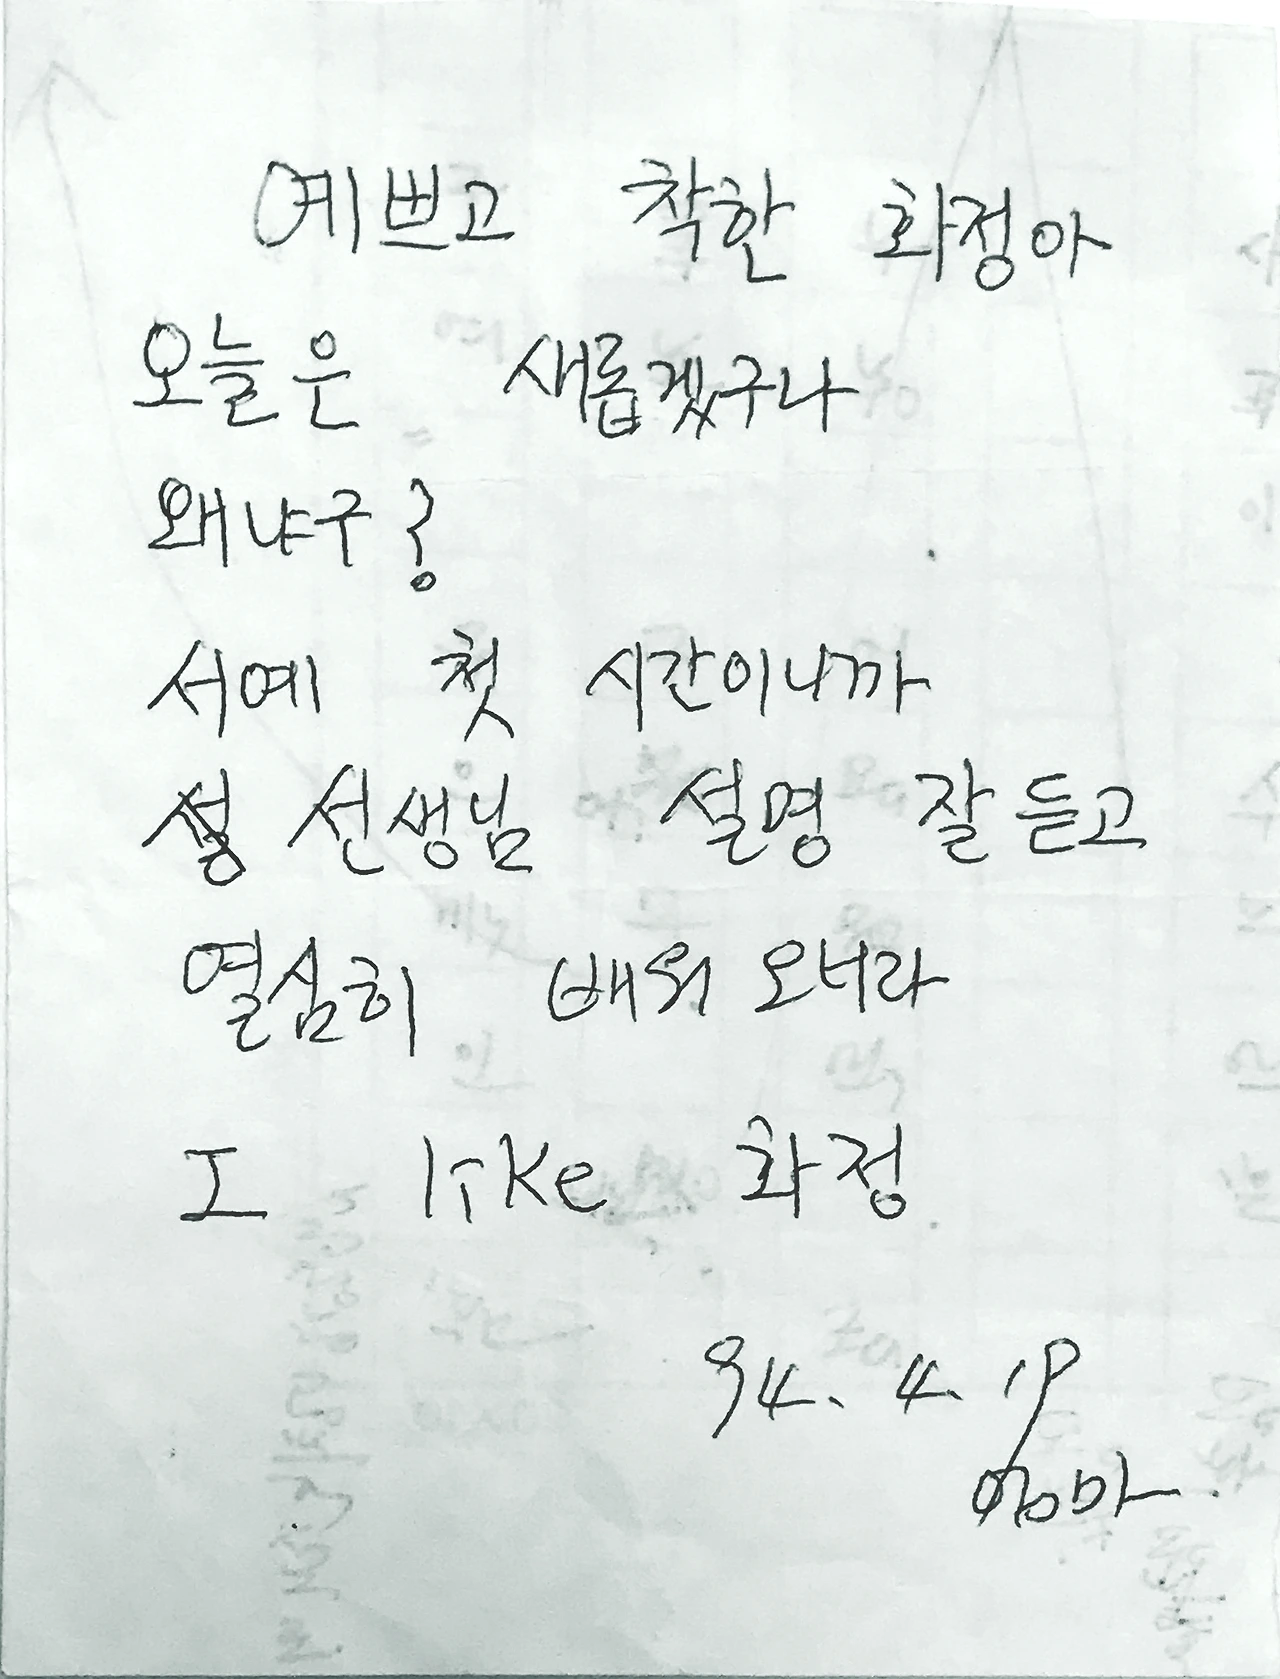 예쁘고 착한 화정아
오늘은 새롭겠구나
왜냐구?
서예 첫 시간이니까
선생님 설명 잘 듣고
열심히 배워 오너라
I like 화정
94. 4. 19
엄마